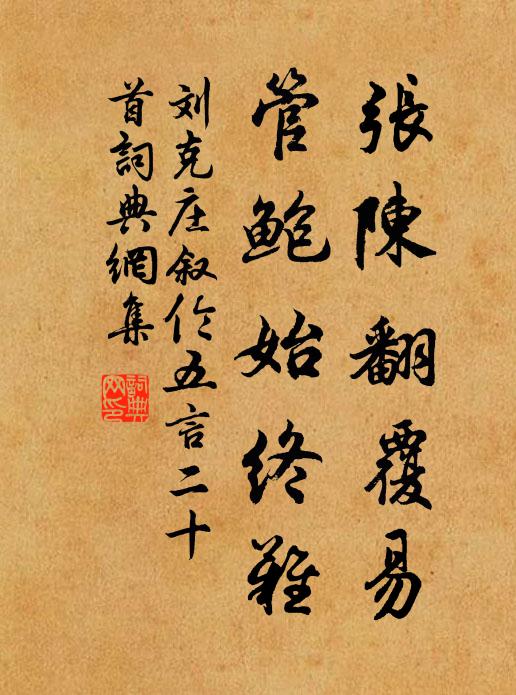 張陳翻覆易
管鲍始终難
刘克庄叙伦五言二十
首詞典網集
詞典網印